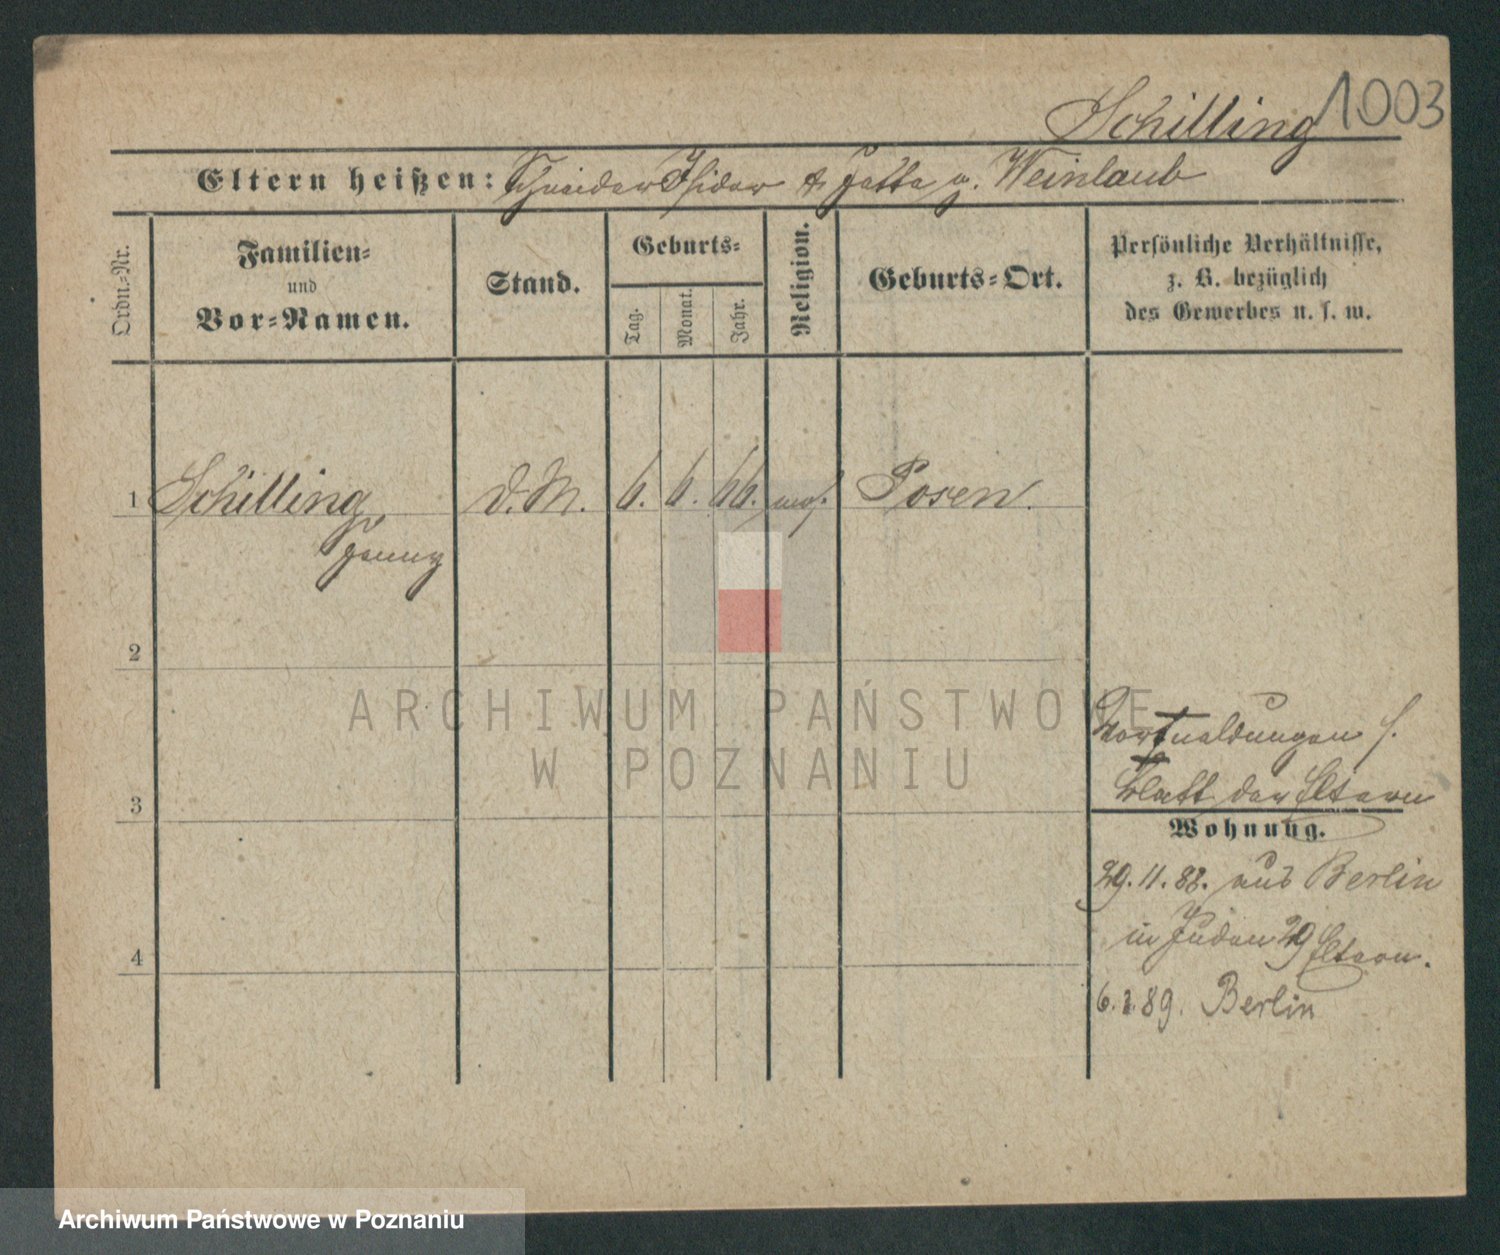 Schilling 1003
Eltern heißen: Schneider Isidor & Jette g. Weinlaub
Ordn.-Nr.
Familien-
und
Vor-Namen.
Stand.
Geburts-
Tag.
Monat.
Jahr.
Religion.
Geburts-Ort.
Persönliche Verhältnisse,
z. B. bezüglich
des Gewerbes u. s. w.
1 Schilling, d. M. 6. 6. 66. mos. Posen.
Jenny
2
3
4
Vormeldungen s.
Blatt der Eltern
Wohnung.
29. 11. 88. aus Berlin
in Juden 29 Eltern.
6. 2. 89. Berlin
ARCHIWUM PAŃSTWOWE
W POZNANIU
Archiwum Państwowe w Poznaniu